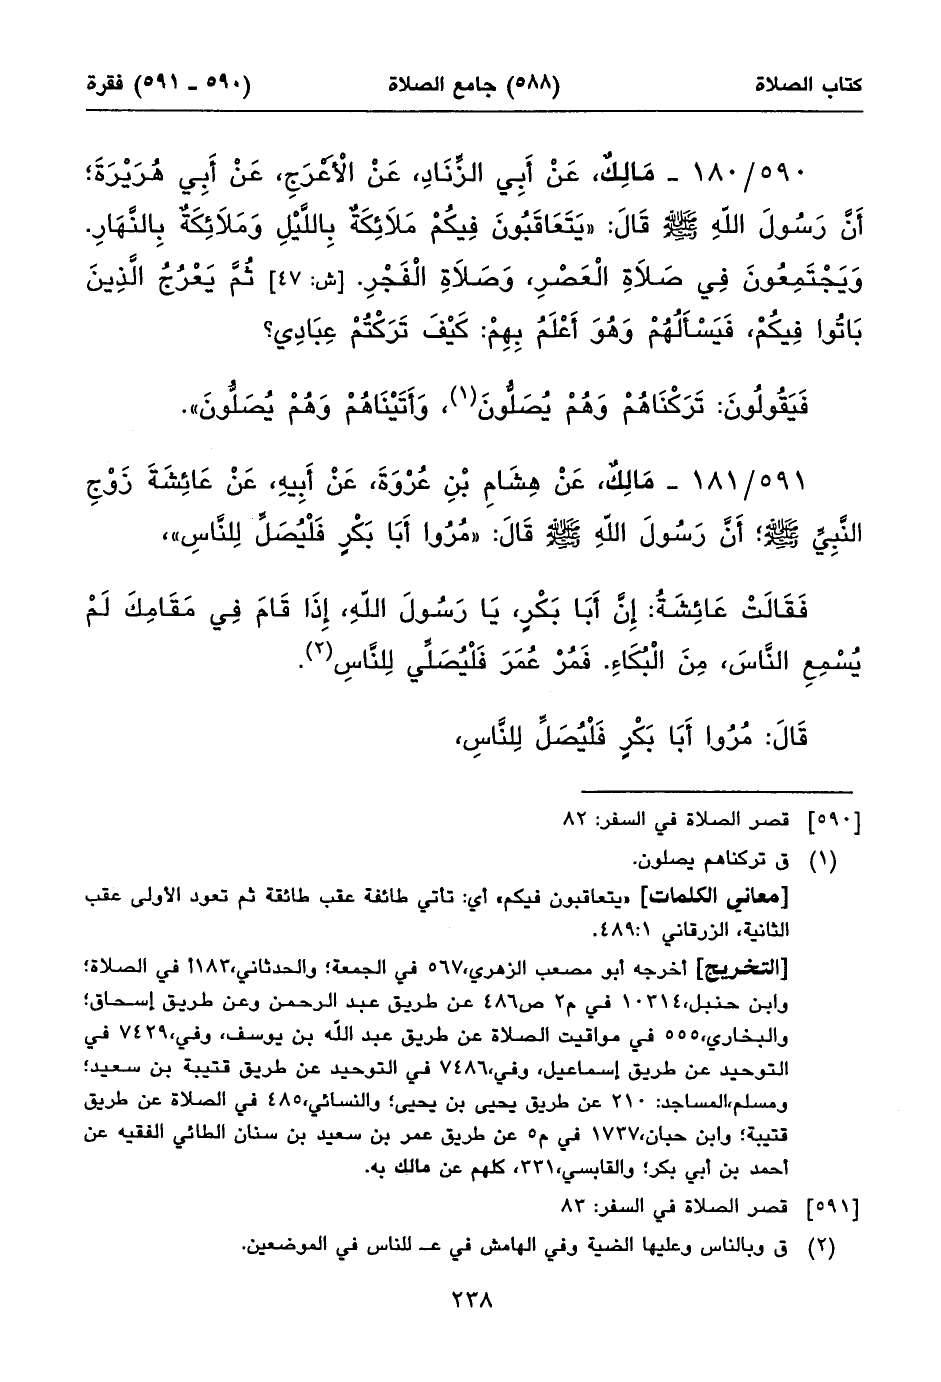 كتاب الصلاة (٥٨٨) جامع الصلاة (٥٩٠ ـ ٥٩١) فقرة
١٨٠/٥٩٠ ـ مَالِكٌ، عَنْ أَبِي الزِّنَادِ، عَنْ الْأَعْرَجِ، عَنْ أَبِي هُرَيْرَةَ؛
أَنَّ رَسُولَ اللَّهِ ﷺ قَالَ: «يَتَعَاقَبُونَ فِيكُمْ مَلَائِكَةٌ بِاللَّيْلِ وَمَلَائِكَةٌ بِالنَّهَارِ.
وَيَجْتَمِعُونَ فِي صَلَاةِ الْعَصْرِ، وَصَلَاةِ الْفَجْرِ. [ش: ٤٧] ثُمَّ يَعْرُجُ الَّذِينَ
بَاتُوا فِيكُمْ، فَيَسْأَلُهُمْ وَهُوَ أَعْلَمُ بِهِمْ: كَيْفَ تَرَكْتُمْ عِبَادِي؟
فَيَقُولُونَ: تَرَكْنَاهُمْ وَهُمْ يُصَلُّونَ(١)، وَأَتَيْنَاهُمْ وَهُمْ يُصَلُّونَ».
١٨١/٥٩١ ـ مَالِكٌ، عَنْ هِشَامِ بْنِ عُرْوَةَ، عَنْ أَبِيهِ، عَنْ عَائِشَةَ زَوْجِ
النَّبِيِّ ﷺ؛ أَنَّ رَسُولَ اللَّهِ ﷺ قَالَ: «مُرُوا أَبَا بَكْرٍ فَلْيُصَلِّ لِلنَّاسِ»،
فَقَالَتْ عَائِشَةُ: إِنَّ أَبَا بَكْرٍ، يَا رَسُولَ اللَّهِ، إِذَا قَامَ فِي مَقَامِكَ لَمْ
يُسْمِعِ النَّاسَ، مِنَ الْبُكَاءِ. فَمُرْ عُمَرَ فَلْيُصَلِّي لِلنَّاسِ(٢).
قَالَ: مُرُوا أَبَا بَكْرٍ فَلْيُصَلِّ لِلنَّاسِ،
[٥٩٠] قصر الصلاة في السفر: ٨٢
(١) ق تركناهم يصلون.
[معاني الكلمات] «يتعاقبون فيكم» أي: تأتي طائفة عقب طائفة ثم تعود الأولى عقب
الثانية، الزرقاني ٤٨٩:١.
[التخريج] أخرجه أبو مصعب الزهري،٥٦٧ في الجمعة؛ والحدثاني،١٨٣أ في الصلاة؛
وابن حنبل،١٠٣١٤ في م٢ ص٤٨٦ عن طريق عبد الرحمن وعن طريق إسحاق؛
والبخاري،٥٥٥ في مواقيت الصلاة عن طريق عبد الله بن يوسف، وفي،٧٤٢٩ في
التوحيد عن طريق إسماعيل، وفي،٧٤٨٦ في التوحيد عن طريق قتيبة بن سعيد؛
ومسلم،المساجد: ٢١٠ عن طريق يحيى بن يحيى؛ والنسائي،٤٨٥ في الصلاة عن طريق
قتيبة؛ وابن حبان،١٧٣٧ في م٥ عن طريق عمر بن سعيد بن سنان الطائي الفقيه عن
أحمد بن أبي بكر؛ والقابسي،٣٣١، كلهم عن مالك به.
[٥٩١] قصر الصلاة في السفر: ٨٣
(٢) ق وبالناس وعليها الضبة وفي الهامش في عـ للناس في الموضعين.
٢٣٨